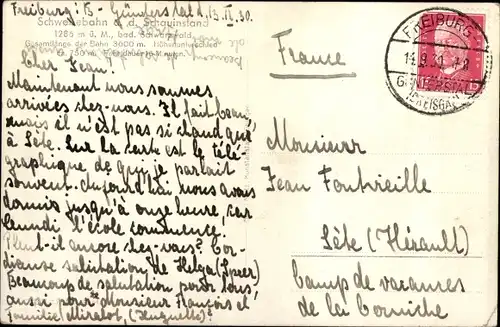 Freiburg i. B - Günterstal d. 13. IX. 30.
Schwebebahn a. d. Schauinsland
1286 m ü. M., bad. Schwarzwald,
Gesamtlänge der Bahn 3600 m. Höhenunterschied
Cher Jean.
Maintenant nous sommes
arrivées chez-nous. Il fait beau,
mais il n'est pas si chaud que
à Sète. Sur la carte est le télé-
graphique de qui je parlait
souvent. aujourd'hui nous avons
dormir jusqu'à onze heure, car
lundi l'école commence!
Pleut-il ancore chez-vous? Cor-
dianse salutation de Helga (Speer)
Beaucoup de salutation pour tous,
aussi pour Monsieur François et
familie Miralot, (Huguette)!
France
FREIBURG
14.9.30
GÜNTERSTAL
(BREISGAU)
Monsieur
Jean Fontvieille
Sète (Hérault)
Camp de vacances
de la Corniche